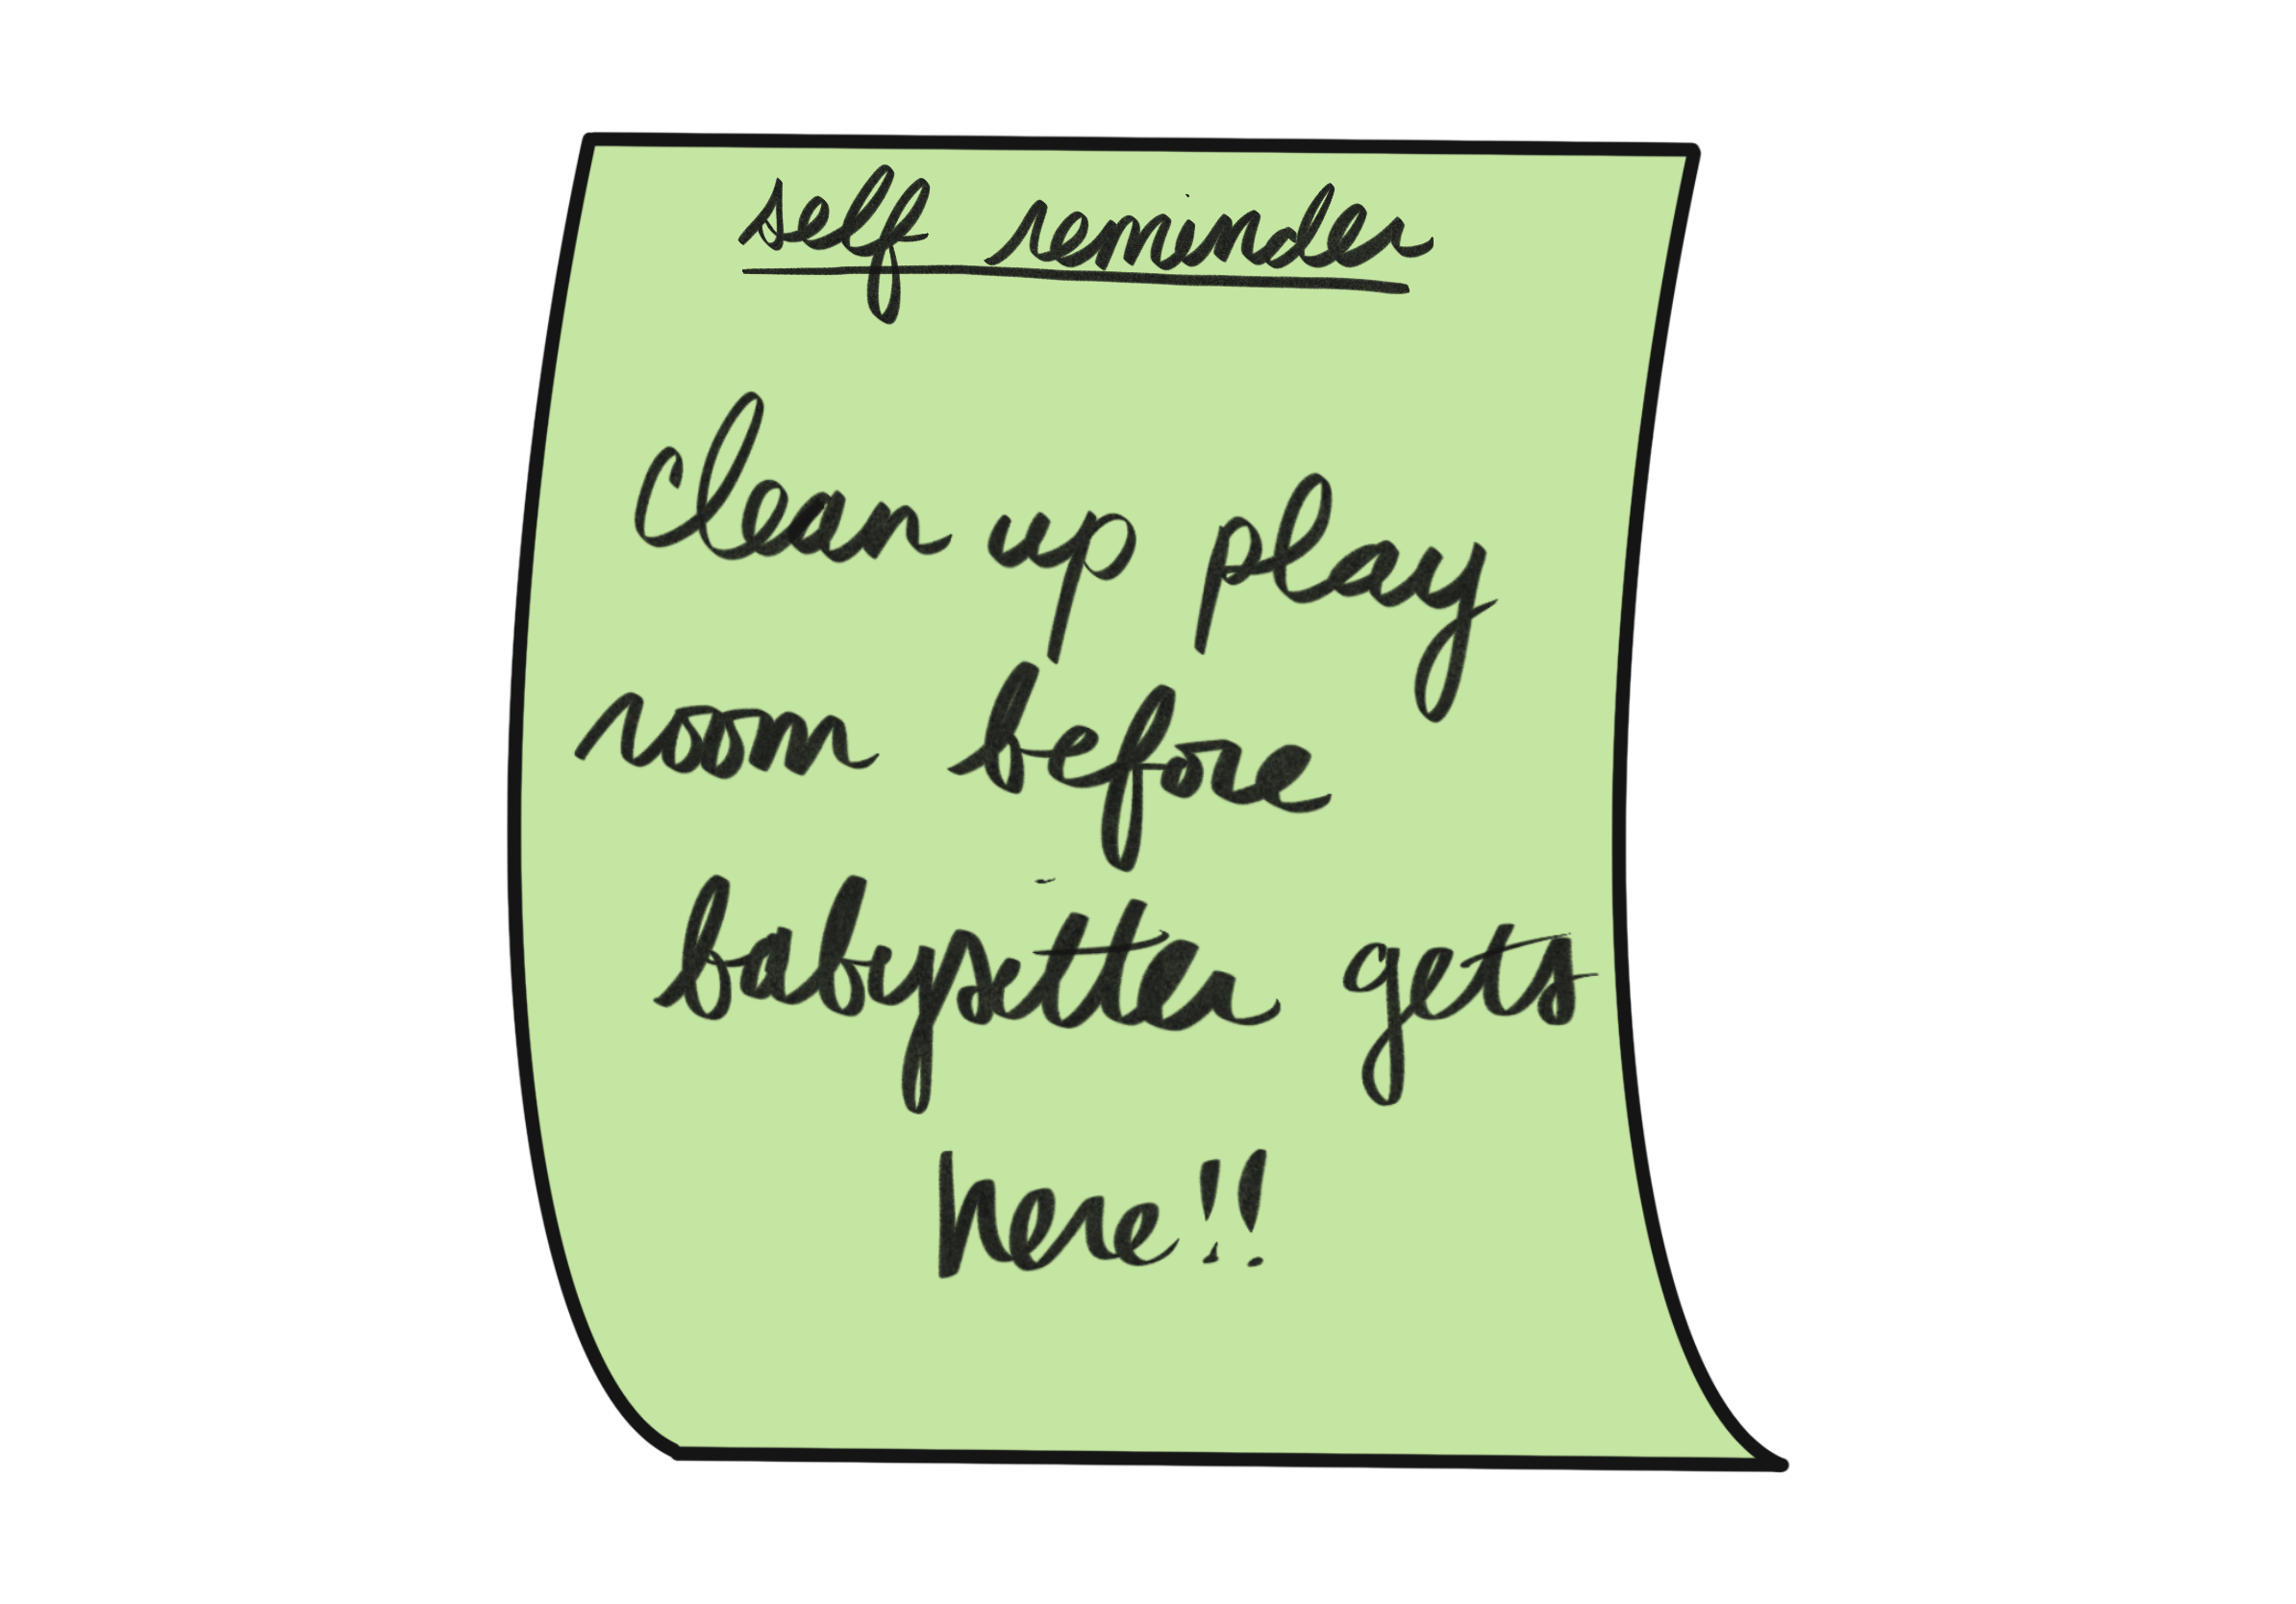 self reminder
clean up play
room before
babysitter gets
here!!